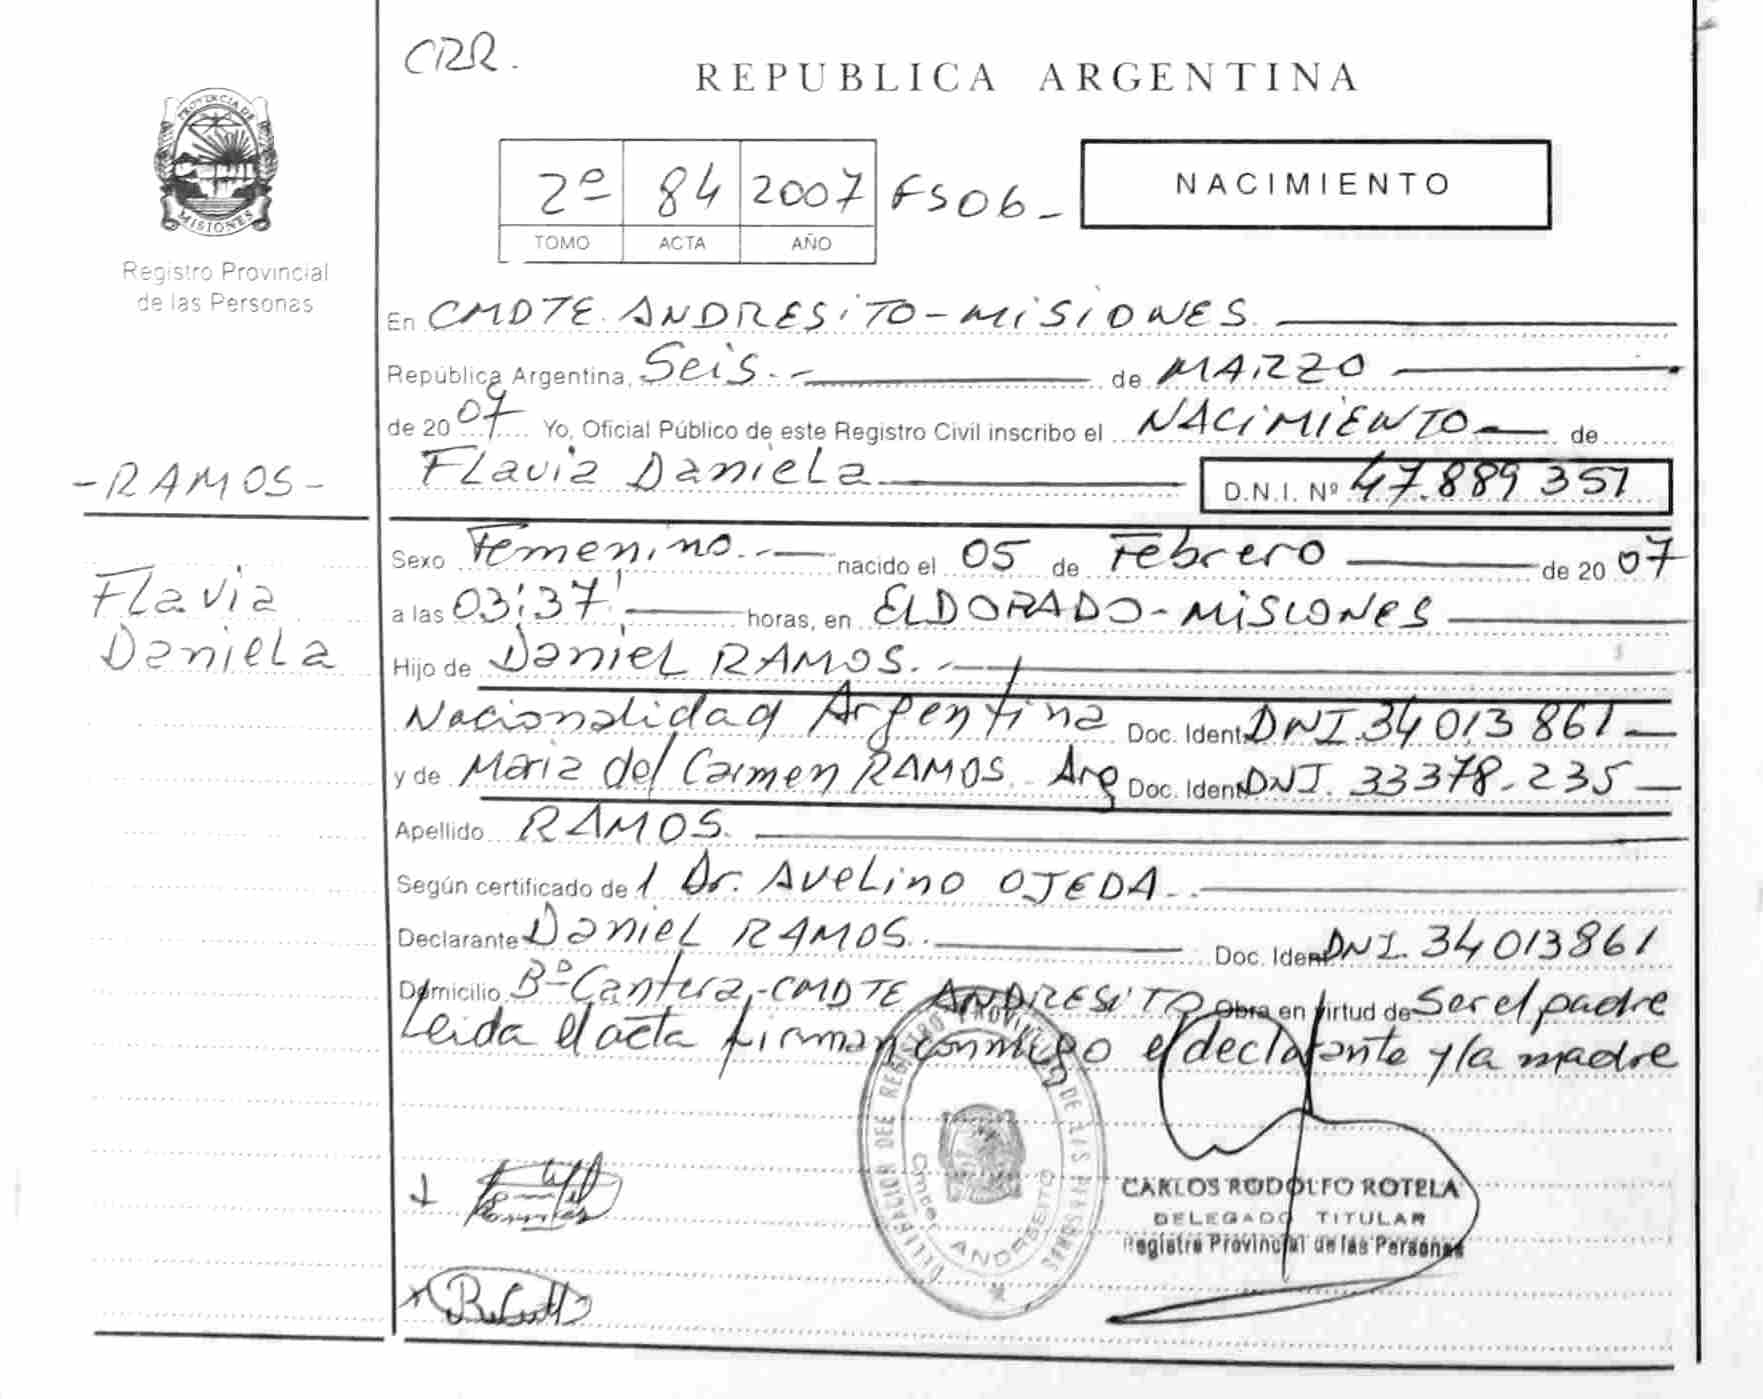 CRR.
REPUBLICA ARGENTINA
PROVINCIA DE
MISIONES
Registro Provincial
de las Personas
2º 84 2007 FS06-
TOMO ACTA AÑO
NACIMIENTO
En CMDTE. ANDRESiTO-MiSiONES.
República Argentina, Seis.- de MARZO
de 2007 Yo, Oficial Público de este Registro Civil inscribo el NACiMiENTO de
-RAMOS-
Flavia Daniela D.N.I. Nº 47.889 351
Sexo Femenino.- nacido el 05 de Febrero de 20 07
Flavia
Daniela
a las 03:37' horas, en ELDORADO-MiSiONES
Hijo de Daniel RAMOS.-
Nacionalidad Argentina Doc. Ident. DNI. 34 013 861-
y de Maria del Carmen RAMOS. Arg Doc. Ident. DNI. 33378.235-
Apellido RAMOS.
Según certificado de l Dr. Avelino OJEDA.-
Declarante Daniel RAMOS. Doc. Ident. DNI. 34013861
Domicilio Bº Cantera,-CMDTE ANDRESiTO Obra en virtud de Ser el padre
Leida el acta firman conmigo el declarante y la madre
DELEGACION DEL REGISTRO PROVINCIAL DE LAS PERSONAS
ANDRESITO
CARLOS RODOLFO ROTELA
DELEGADO TITULAR
Registro Provincial de las Personas